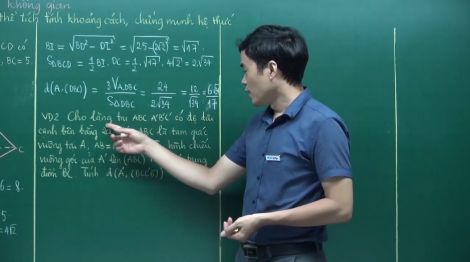 không gian
thể tích tính khoảng cách, chứng minh hệ thức
CD có
, BC = 5.
BI = √(BD² - DI²) = √(25 - (2√2)²) = √17.
S_ΔBCD = 1/2 BI · DC = 1/2 · √17 · 4√2 = 2√34
d(A, (DBC)) = 3V_A.DBC / S_ΔDBC = 24 / 2√34 = 12 / √34 = 6
17
VD2 Cho lăng trụ ABC A'B'C' có độ dài
cạnh bên bằng ABC là tam giác
vuông tại A, AB = hình chiếu
vuông góc của A' lên (ABC) trung
điểm BC Tính d(A',
C
6 = 8.
5
= 4√2